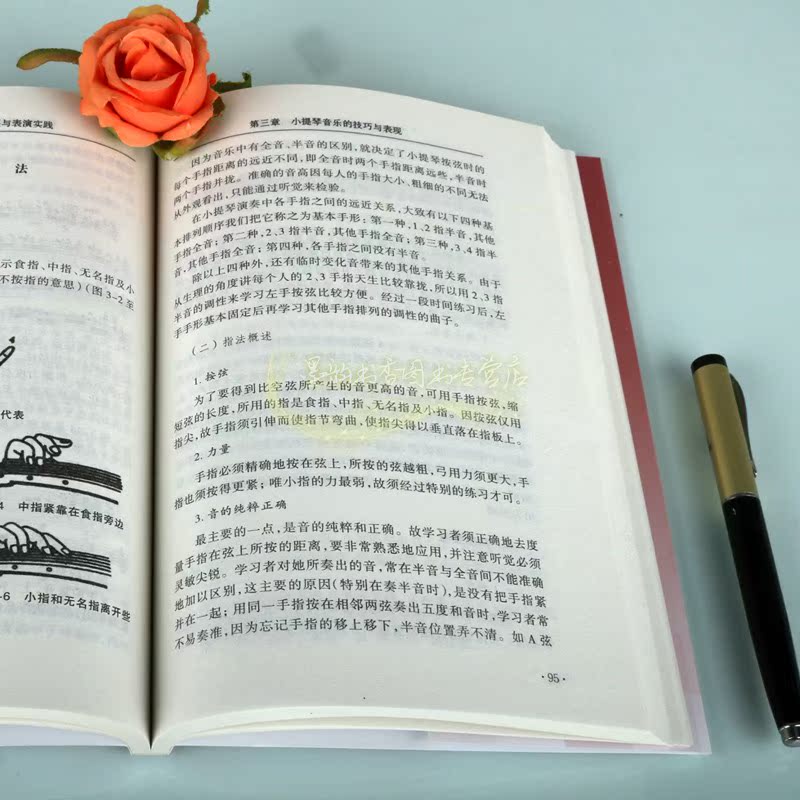 与表演实践
法
示食指、中指、无名指及小
不按指的意思)(图3-2至
代表
4 中指紧靠在食指旁边
-6 小指和无名指离开些
第三章 小提琴音乐的技巧与表现
因为音乐中有全音、半音的区别,就决定了小提琴按弦时的
每个手指距离的远近不同,即全音时两个手指距离远些,半音时
两个手指并拢。准确的音高因每人的手指大小、粗细的不同无法
从外观看出,只能通过听觉来检验。
在小提琴演奏中各手指之间的远近关系,大致有以下四种基
本排列顺序我们把它称之为基本手形:第一种,1、2指半音,其他
手指全音;第二种,2、3指半音,其他手指全音;第三种,3、4指半
音,其他手指全音;第四种,各手指之间没有半音。
除以上四种外,还有临时变化音带来的其他手指关系。由于
从生理的角度讲每个人的2、3手指天生比较靠拢,所以用2、3指
半音的调性来学习左手按弦比较方便。经过一段时间练习后,左
手手形基本固定后再学习其他手指排列的调性的曲子。
(二)指法概述
1. 按弦
为了要得到比空弦所产生的音更高的音,可用手指按弦,缩
短弦的长度,所用的指是食指、中指、无名指及小指。因按弦仅用
指尖,故手指须引伸而使指节弯曲,使指尖得以垂直落在指板上。
2. 力量
手指必须精确地按在弦上,所按的弦越粗,弓用力须更大,手
指也须按得更紧;唯小指的力最弱,故须经过特别的练习才可。
3. 音的纯粹正确
最主要的一点,是音的纯粹和正确。故学习者须正确地去度
量手指在弦上所按的距离,要非常熟悉地应用,并注意听觉必须
灵敏尖锐。学习者对她所奏出的音,常在半音与全音间不能准确
地加以区别,这主要的原因(特别在奏半音时),是没有把手指紧
并在一起;用同一手指按在相邻两弦奏出五度和音时,学习者常
不易奏准,因为忘记手指的移上移下,半音位置弄不清。如A弦
·95·